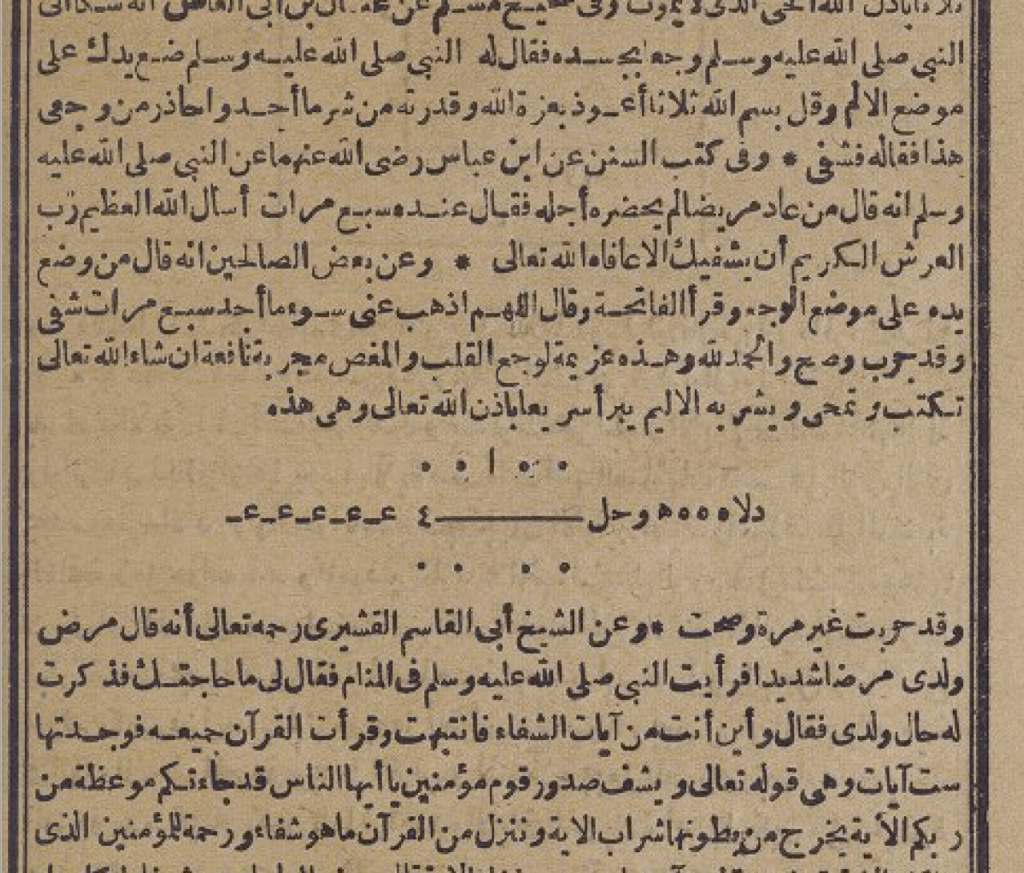 الله الحى الذى لا يموت وفى صحيح مسلم عن عثمان بن أبى العاص أنه شكا الى
النبى صلى الله عليه وسلم وجعا بجسده فقال له النبى صلى الله عليه وسلم ضع يدك على
موضع الالم وقل بسم الله ثلاثا أعوذ بعزة الله وقدرته من شر ما أجد واحاذر من وجعى
هذا فقاله فشفى * وفى كتب السنن عن ابن عباس رضى الله عنهما عن النبى صلى الله عليه
وسلم انه قال من عاد مريضا لم يحضره أجله فقال عنده سبع مرات أسأل الله العظيم رب
العرش الكريم أن يشفيك الا عافاه الله تعالى * وعن بعض الصالحين انه قال من وضع
يده على موضع الوجع وقرأ الفاتحة وقال اللهم اذهب عنى سوء ما أجد سبع مرات شفى
وقد جرب وصح والحمد لله وهذه عزيمة لوجع القلب والمغص مجربة نافعة ان شاء الله تعالى
تكتب وتمحى ويشربه الاليم يبرأ سريعا باذن الله تعالى وهى هذه
• • ا • •
دلا ٥٥٥ ه وحل ـــــــــــ ٤ عـ عـ عـ عـ عـ
• • • •
وقد جربت غير مرة وصحت * وعن الشيخ أبى القاسم القشيرى رحمه تعالى أنه قال مرض
ولدى مرضا شديدا فرأيت النبى صلى الله عليه وسلم فى المنام فقال لى ما حاجتك فذكرت
له حال ولدى فقال وأين أنت من آيات الشفاء فانتبهت وقرأت القرآن جميعه فوجدتها
ست آيات وهى قوله تعالى ويشف صدور قوم مؤمنين يا أيها الناس قد جاءتكم موعظة من
ربكم الآية يخرج من بطونها شراب الاية وننزل من القرآن ما هو شفاء ورحمة للمؤمنين الذى